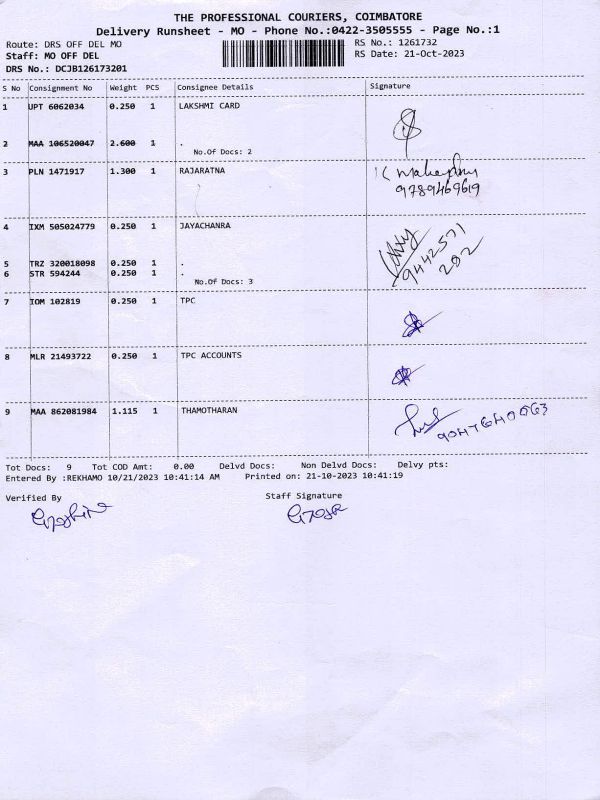 THE PROFESSIONAL COURIERS, COIMBATORE
Delivery Runsheet - MO - Phone No.:0422-3505555 - Page No.:1
Route: DRS OFF DEL MO RS No.: 1261732
Staff: MO OFF DEL RS Date: 21-Oct-2023
DRS No.: DCJB126173201
S No Consignment No Weight PCS Consignee Details Signature
1 UPT 6062034 0.250 1 LAKSHMI CARD
2 MAA 106520047 2.600 1 .
No.Of Docs: 2
3 PLN 1471917 1.300 1 RAJARATNA
9789469619
4 IXM 505024779 0.250 1 JAYACHANRA
9442571
202
5 TRZ 320018098 0.250 1 .
6 STR 594244 0.250 1 .
No.Of Docs: 3
7 IOM 102819 0.250 1 TPC
8 MLR 21493722 0.250 1 TPC ACCOUNTS
9 MAA 862081984 1.115 1 THAMOTHARAN
Tot Docs: 9 Tot COD Amt: 0.00 Delvd Docs: Non Delvd Docs: Delvy pts:
Entered By :REKHAMO 10/21/2023 10:41:14 AM Printed on: 21-10-2023 10:41:19
Verified By Staff Signature